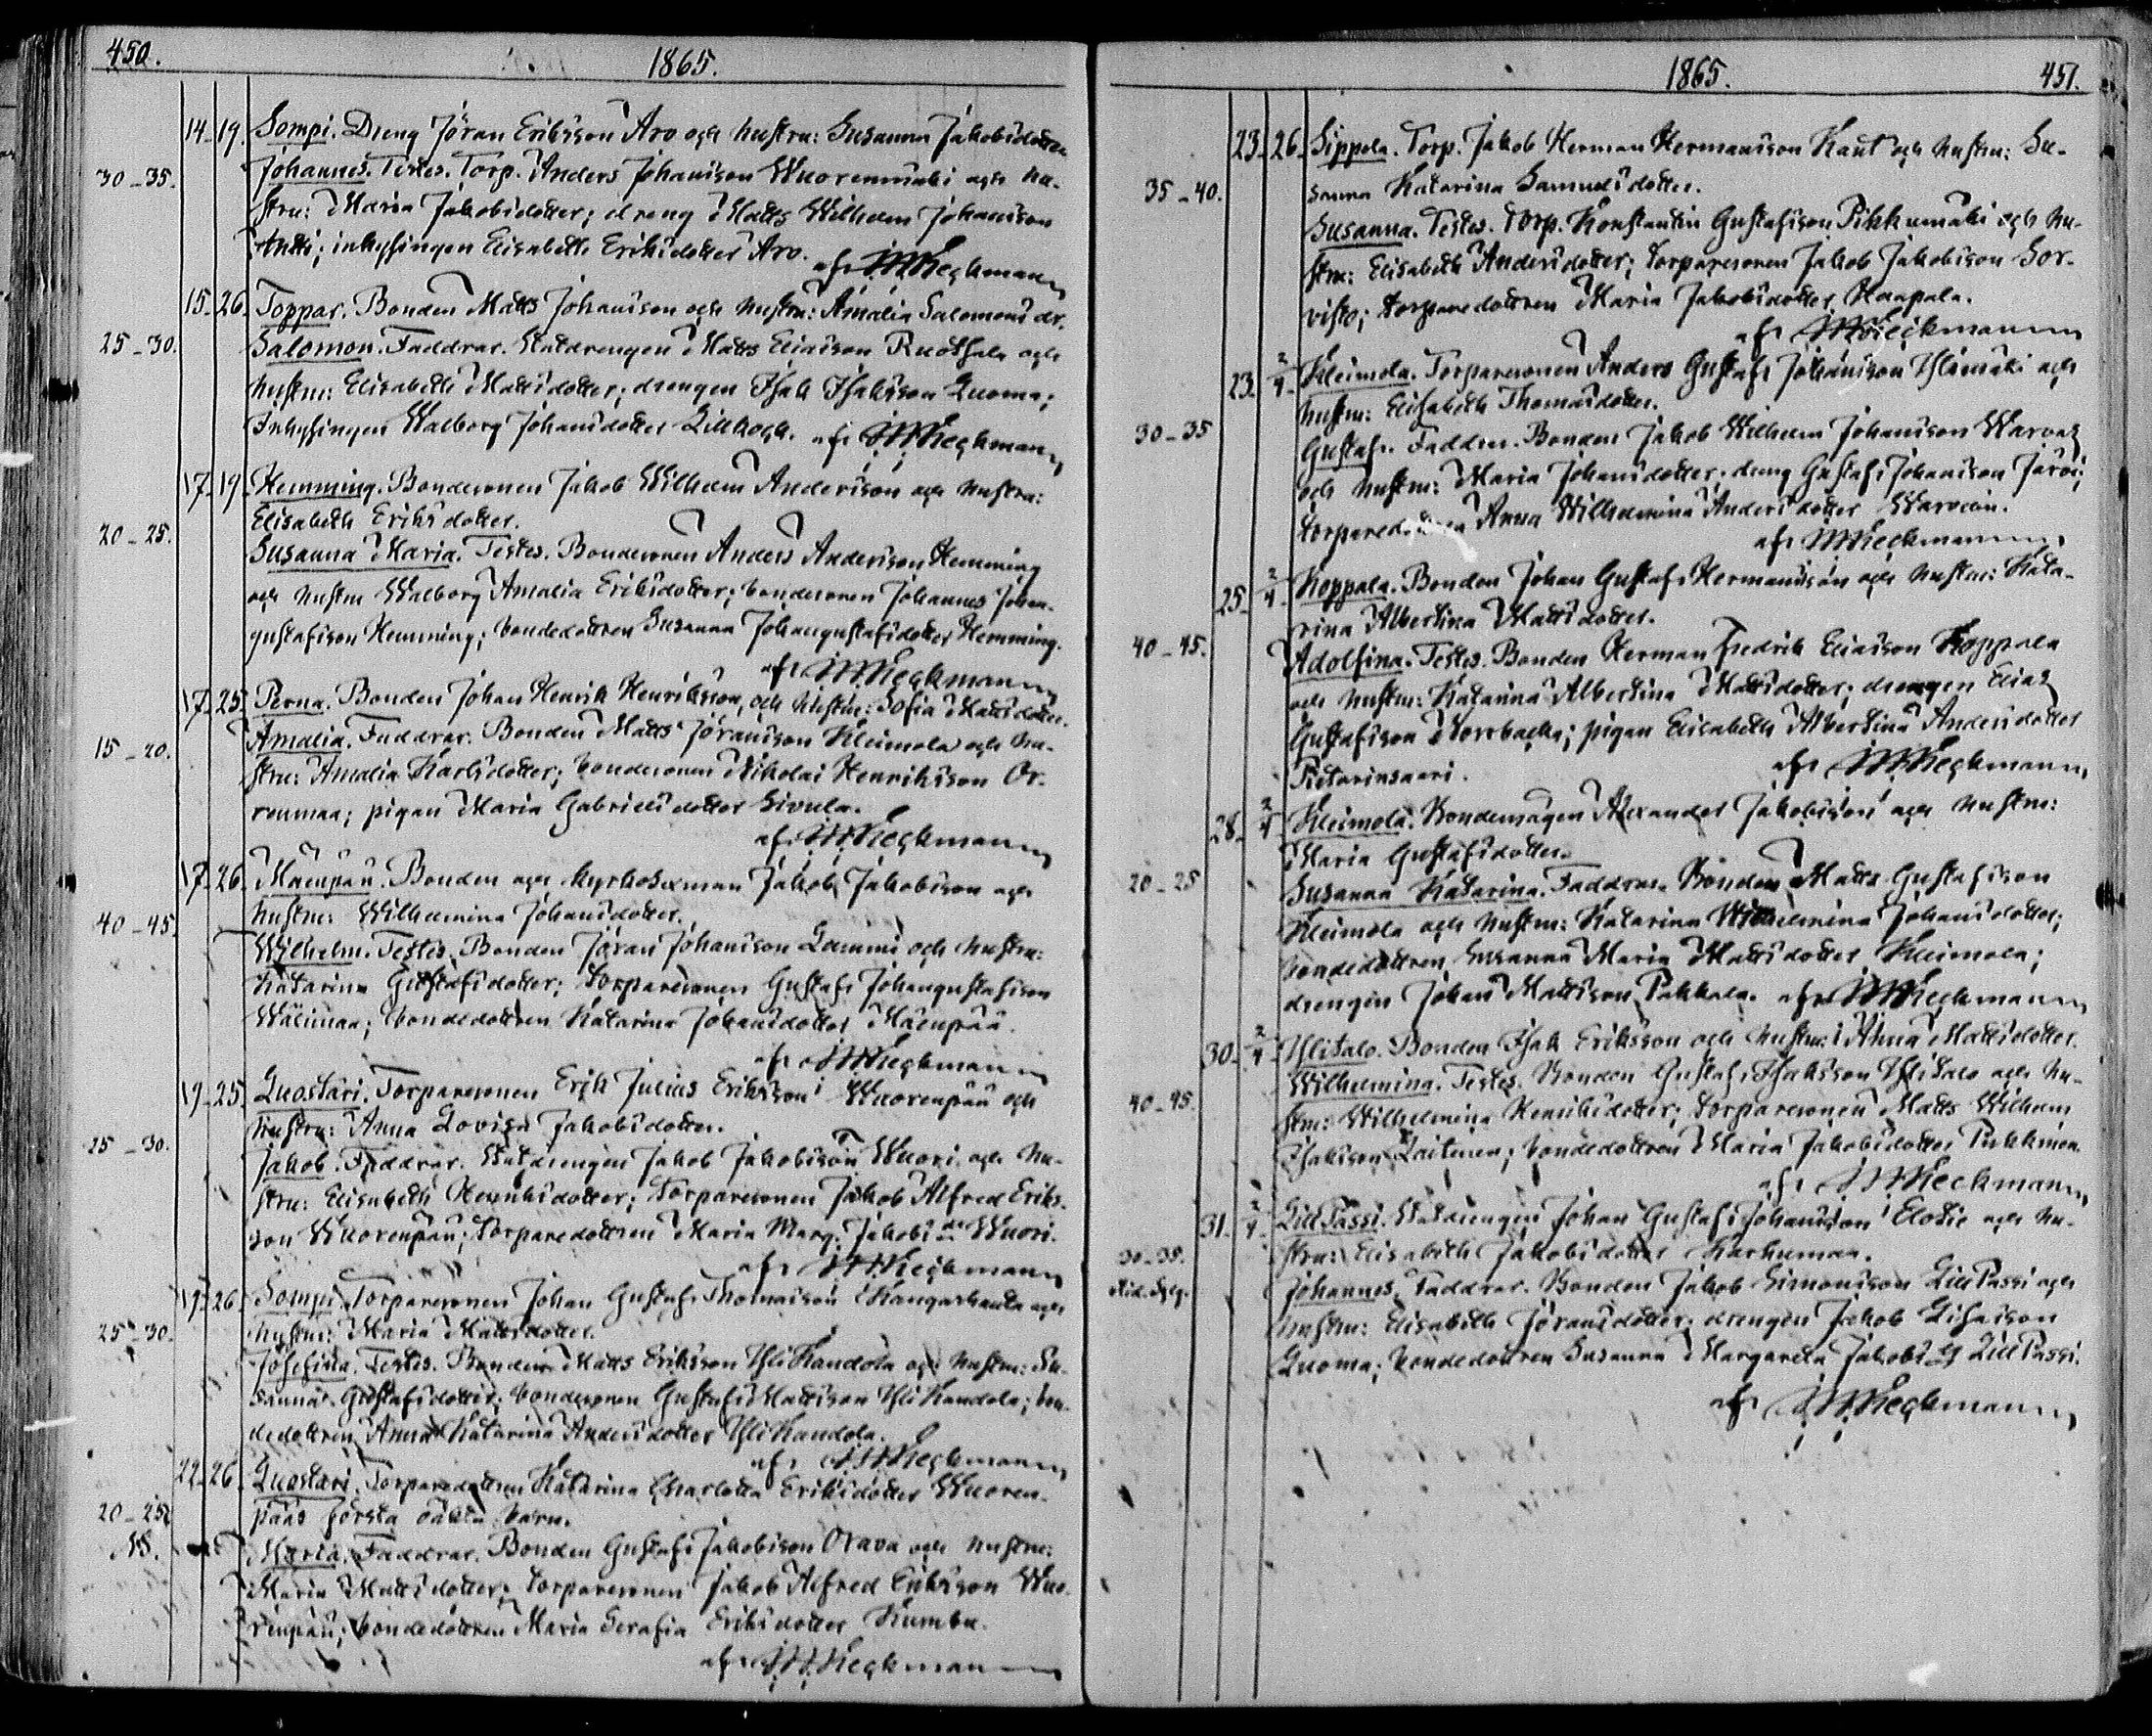 450.
1865.
14. 19. Sompi. Dreng Jöran Eriksson Aro och hustru: Susanna Jakobsdotter
30-35. Johannes. Testes. Torp. Anders Johansson Wuorenmäki och hu-
stru: Maria Jakobsdotter; dreng Matts Wilhelm Johansson
Antti; inhysingen Elisabeth Eriksdotter Aro.
af
15. 26. Toppar. Bonden Matts Johansson och hustru: Amalia Salomons dr.
25-30. Salomon. Faddrar. Statdrengen Matts Eliasson Ruotsala och
hustru: Elisabeth Mattsdotter; drengen Isak Isaksson Luoma;
Inhysingen Walborg Johansdotter Lillkock. af
17. 19. Hemming. Bondesonen Jakob Wilhelm Andersson och hustru:
Elisabeth Eriksdotter.
20-25. Susanna Maria. Testes. Bondesonen Anders Andersson Hemming
och hustru Walborg Amalia Eriksdotter; bondesonen Johannes Johan-
gustafsson Hemming; bondedottren Susanna Johangustafsdotter Hemming.
af
17. 25. Perna. Bonden Johan Henrik Henriksson, och hustru: Sofia Mattsdotter.
15-20. Amalia. Faddrar. Bonden Matts Jöransson Kleimola och hu-
stru: Amalia Karlsdotter; bondesonen Nikolai Henriksson Or-
renmaa; pigan Maria Gabrielsdotter Sivula.
af
17. 26. Mäenpää. Bonden och kyrkosexman Jakob Jakobsson och
40-45. hustru: Wilhelmina Johansdotter.
Wilhelm. Testes. Bonden Jöran Johansson Lammi och hustru:
Katarina Gustafsdotter; torparesonen Gustaf Johangustafsson
Wälimaa; bondedottren Katarina Johansdotter Mäenpää.
af
19. 25. Luostari. Torparesonen Erik Julius Eriksson Wuorenpää och
hustru: Anna Lovisa Jakobsdotter.
25-30. Jakob. Faddrar. Statdrengen Jakob Jakobsson Wuori och hu-
stru: Elisabeth Henriksdotter; torparesonen Jakob Alfred Eriks-
son Wuorenpää; torparedottren Maria Marg. Jakobs dr Wuori.
af
19. 26. Sompi. Torparesonen Johan Gustaf Thomasson Kangashauta och
25-30. hustru: Maria Mattsdotter.
Josefina. Testes. Bonden Matts Eriksson YliKandola och hustru: Su-
sanna Gustafsdotter; bondesonen Gustaf Mattsson YliKandola; bon-
dedottren Anna Katarina Andersdotter YliKandola.
af
22. 26. Luostari. Torparedottren Katarina Charlotta Eriksdotter Wuoren-
20-25. pääs första oäkta barn.
Maria. Faddrar. Bonden Gustaf Jakobsson Orava och hustru:
Maria Mattsdotter; torparesonen Jakob Alfred Eriksson Wuo-
renpää; bondedottren Maria Serafia Eriksdotter Kumba.
af
1865.
451.
23. 26. Sippola. Torp. Jakob Herman Hermansson Kaut och hustru: Su-
35-40. sanna Katarina Samuelsdotter.
Susanna. Testes. Torp. Konstantin Gustafsson Pikkumäki och hu-
stru: Elisabeth Andersdotter; torparesonen Jakob Jakobsson Sor-
visto; torparedottren Maria Jakobsdotter Haapala.
af
23. 2/4. Kleimola. Torparesonen Anders Gustaf Johansson Ylimäki och
hustru: Elisabeth Thomasdotter.
30-35 Gustaf. Faddrar. Bonden Jakob Wilhelm Johansson Warvas
och hustru: Maria Johansdotter; dreng Gustaf Johansson Järvi;
torparedottren Anna Wilhelmina Andersdotter
af
25. 2/4. Koppala. Bonden Johan Gustaf Hermansson och hustru: Kata-
rina Albertina Mattsdotter.
40-45. Adolfina. Testes. Bonden Herman Fredrik Eliasson Koppala
och hustru: Katarina Albertina Mattsdotter; drengen Elias
Gustafsson Norrbacka; pigan Elisabeth Albertina Andersdotter
Pietarinsaari.
af
28. 2/4. Kleimola. Bondemågen Alexander Jakobsson och hustru:
Maria Gustafsdotter.
20-25 Susanna Katarina. Faddrar. Bonden Matts Gustafsson
Kleimola och hustru: Katarina Wilhelmina Johansdotter;
bondedottren Susanna Maria Mattsdotter Kleimola;
drengen Johan Mattsson Pakkala. af
30. 2/4. Ylitalo. Bonden Isak Eriksson och hustru: Anna Mattsdotter.
Wilhelmina. Testes. Bonden Gustaf Isaksson Ylitalo och hu-
40-45. stru: Wilhelmina Henriksdotter; torparesonen Matts Wilhelm
Isaksson Laitinen; bondedottren Maria Jakobsdotter
af
31. 2/4. LillPassi. Statdrengen Johan Gustaf Johansson Elosie och hu-
30-35. stru: Elisabeth Jakobsdotter Karhumaa.
Johannes. Faddrar. Bonden Jakob Simonsson LillPassi och
hustru: Elisabeth Jöransdotter; drengen Jakob
Luoma; bondedottren Susanna Margareta Jakobs dr LillPassi.
af